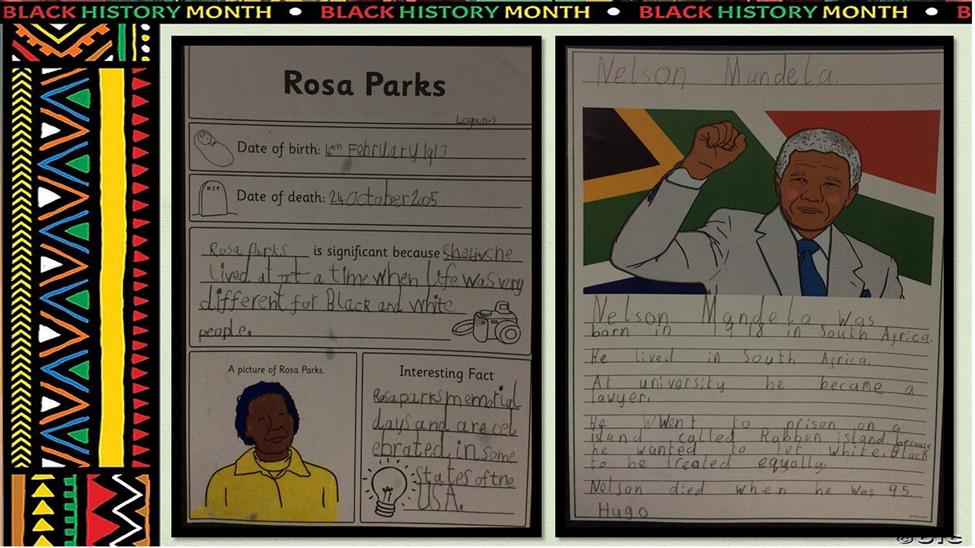 BLACK HISTORY MONTH • BLACK HISTORY MONTH • BLACK HISTORY MONTH • B
Rosa Parks
Date of birth: 4th February 1913
RIP
Date of death: 24 October 2005
Rosa Parks is significant because she
lived at at a time when life was very
different for Black and white
people.
A picture of Rosa Parks.
Interesting Fact
Rosa parks memorial
days and are cel
ebrated in some
states of the
USA.
Nelson Mandela.
Nelson Mandela was
born in 1918 in South Africa.
He lived in South Africa.
At university he became a
lawyer.
He wwent to prison on a
island called Robben island because
he wanted to et white, black
to be treated equally.
Nelson died when he was 95.
Hugo